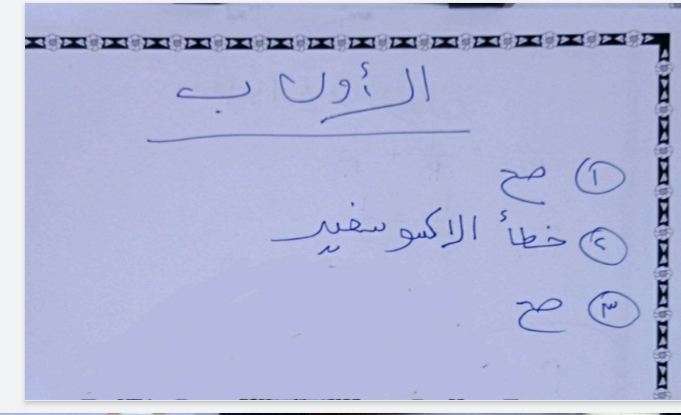 الأول ب
١ صح
٢ خطأ الاكسوسفير
٣ صح